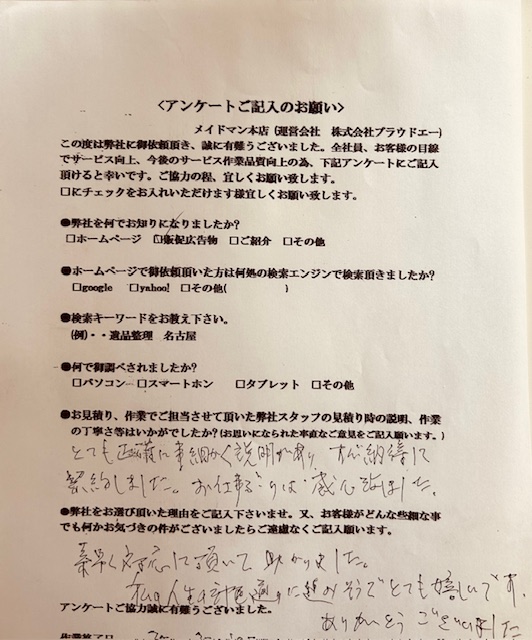 <アンケートご記入のお願い>
メイドマン本店 (運営会社 株式会社プラウドエー)
この度は弊社に御依頼頂き、誠に有難うございました。全社員、お客様の目線
でサービス向上、今後のサービス作業品質向上の為、下記アンケートにご記入
頂けると幸いです。ご協力の程、宜しくお願い致します。
□にチェックをお入れいただけます様宜しくお願い致します。
●弊社を何でお知りになりましたか?
□ホームページ ☑販促広告物 □ご紹介 □その他
●ホームページで御依頼頂いた方は何処の検索エンジンで検索頂きましたか?
□google □yahoo! □その他( )
●検索キーワードをお教え下さい。
(例)・・遺品整理 名古屋
●何で御調べされましたか?
□パソコン □スマートホン □タブレット □その他
●お見積り、作業でご担当させて頂いた弊社スタッフの見積り時の説明、作業
の丁寧さ等はいかがでしたか? (お思いになられた事直なご意見をご記入願います。)
とても 細かく説明があり、 納得して
契約しました。お仕事ぶりは 感心致しました。
●弊社をお選び頂いた理由をご記入下さいませ。又、お客様がどんな些細な事
でも何かお気づきの件がございましたらご遠慮なくご記入願います。
素早く対応して頂いて助かりました。
私の人生計画通りに進みそうでとても嬉しいです。
アンケートご協力誠に有難うございました。
ありがとうございました
作業終了日